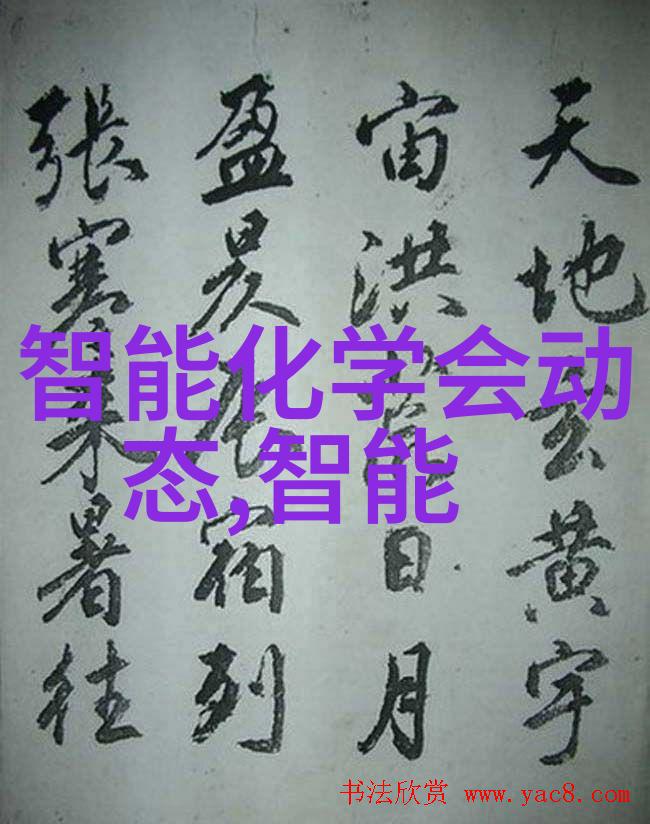 天地玄黄宇
宙洪荒日月
盈昃辰宿列
張寒来暑往
智能化学会动
态,智能
书法欣赏 www.yac8.com